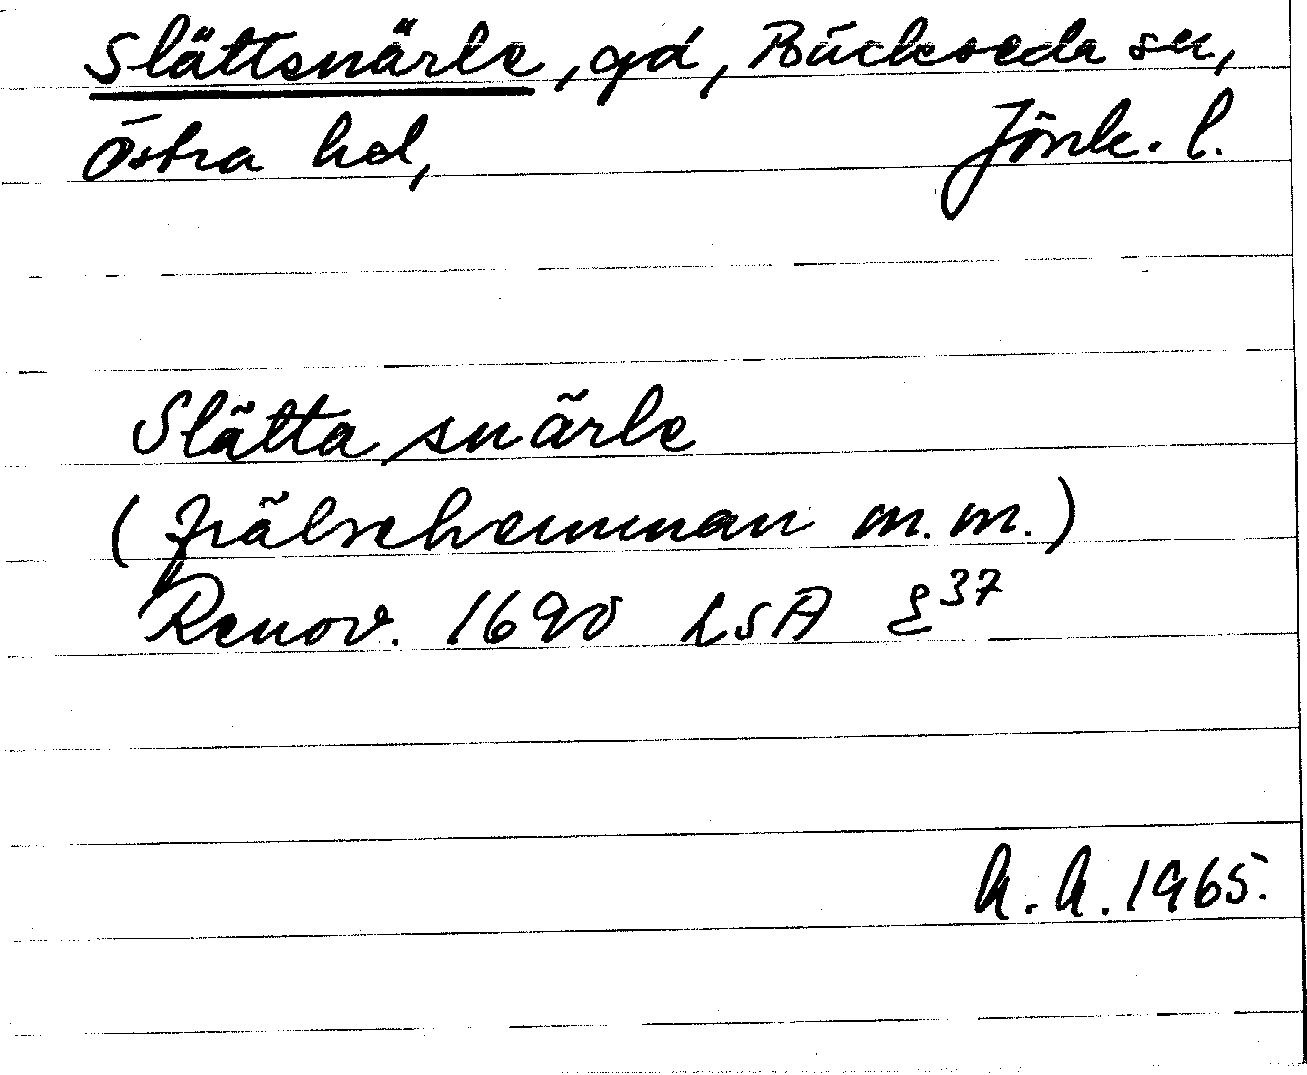 Slättsnärle, gd, Bäckseda sn,
Östra hd, Jönk. l.
Slätta snärle
(frälsehemman m.m.)
Renov. 1690 LSA E³⁷
A.A. 1965.